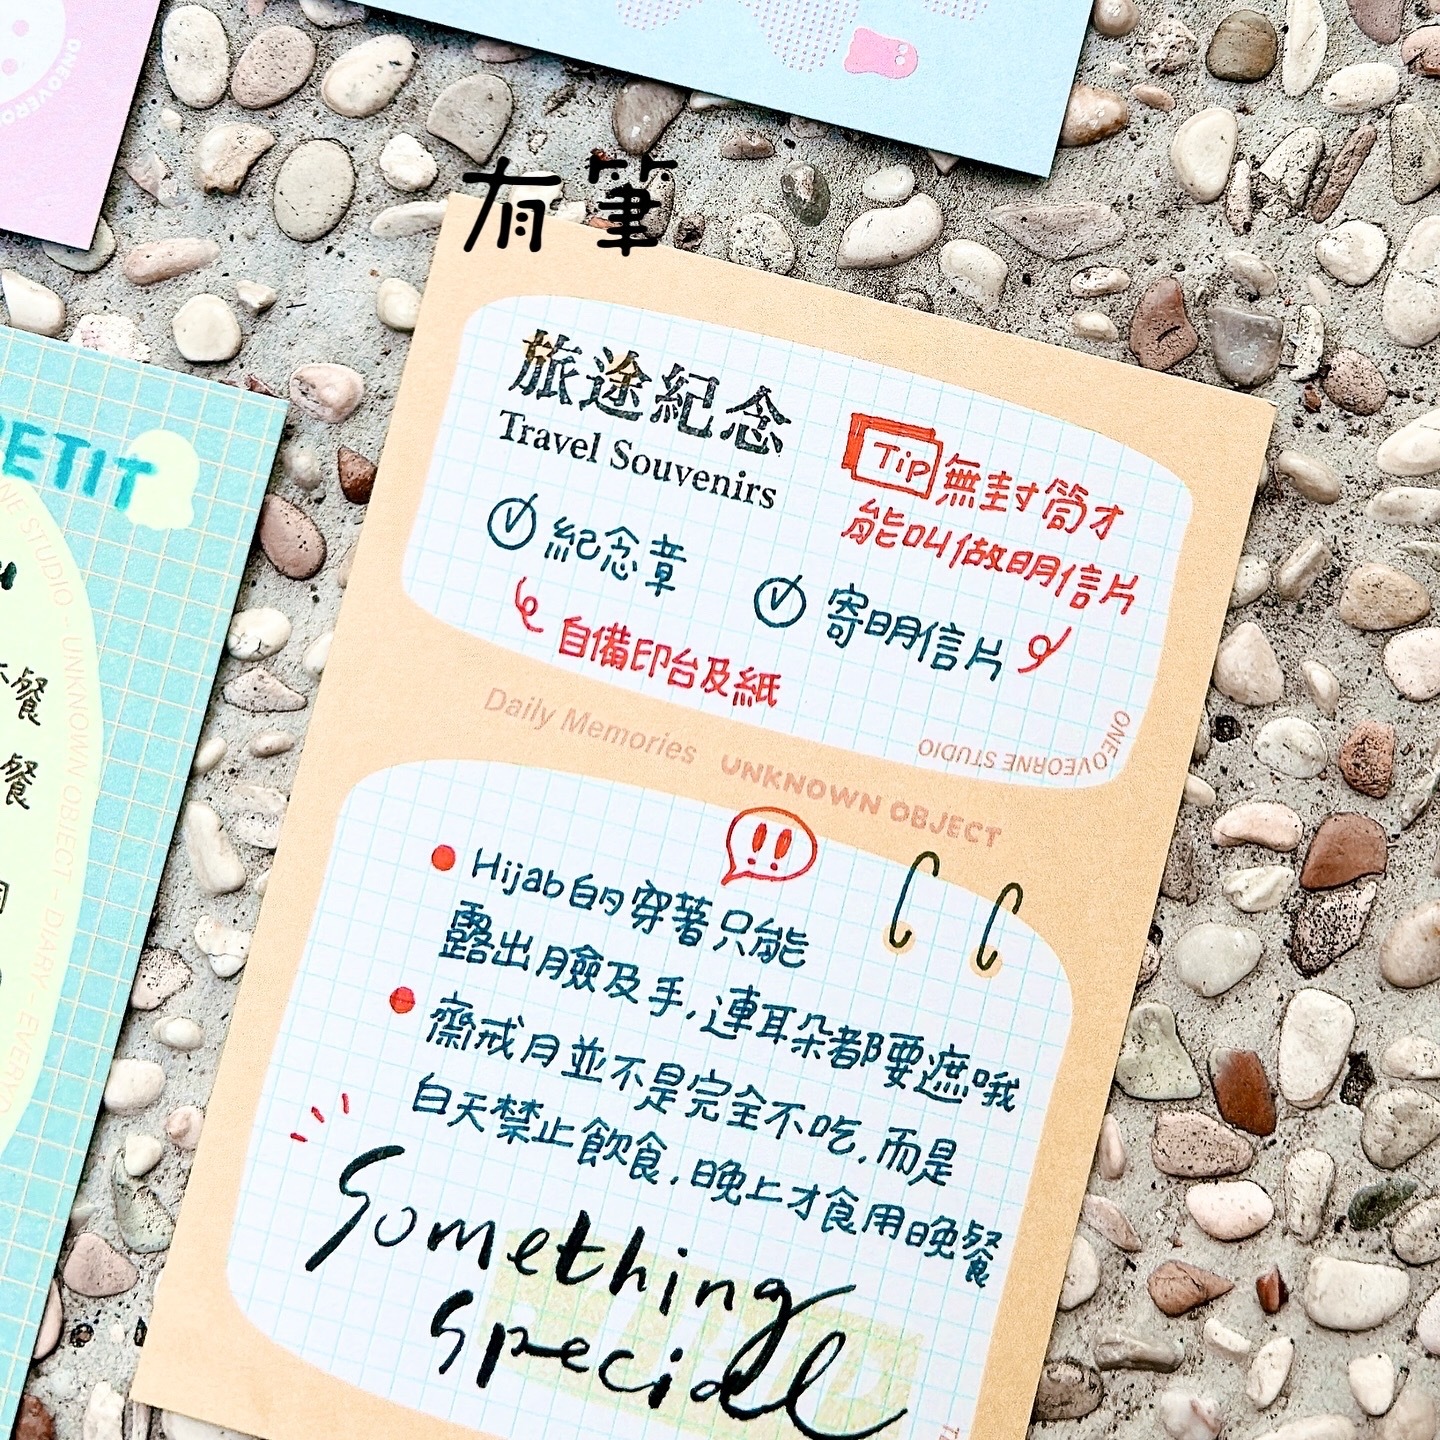 有筆
旅途紀念
Travel Souvenirs
Tip 無封筒才
能叫做明信片
紀念章
自備印台及紙
寄明信片
ONELOVEORNE STUDIO
Daily Memories UNKNOWN OBJECT
!!
Hijab的穿著只能
露出臉及手,連耳朵都要遮哦
齋戒月並不是完全不吃,而是
白天禁止飲食,晚上才食用晚餐
Something
special
PETIT
NE STUDIO - UNKNOWN OBJECT - DIARY - EVERYD
餐
餐
ONEOVERO